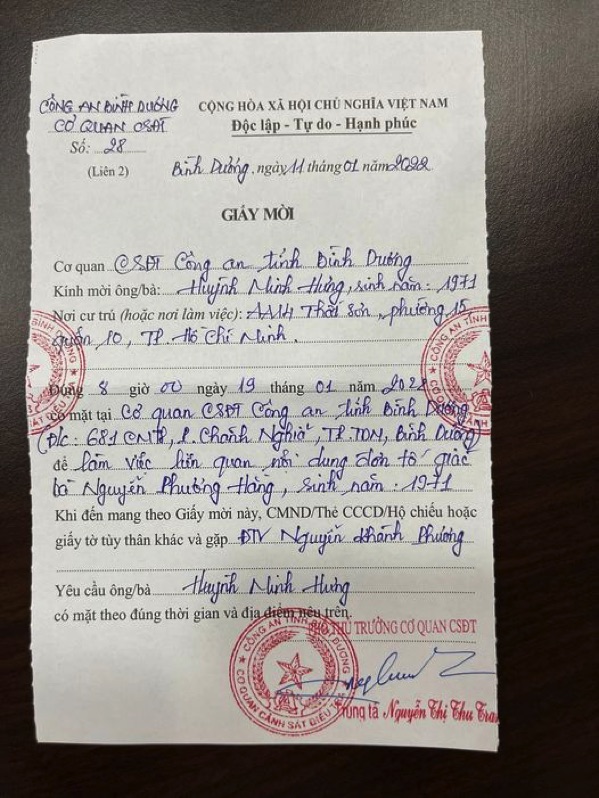 CÔNG AN BÌNH DƯƠNG
CƠ QUAN CSĐT
Số: 28
(Liên 2)
CỘNG HÒA XÃ HỘI CHỦ NGHĨA VIỆT NAM
Độc lập - Tự do - Hạnh phúc
Bình Dương, ngày 11 tháng 01 năm 2022
GIẤY MỜI
Cơ quan CSĐT Công an tỉnh Bình Dương
Kính mời ông/bà: Huỳnh Minh Hưng, sinh năm: 1971
Nơi cư trú (hoặc nơi làm việc): AA14 Thất Sơn, phường 15
quận 10, TP. Hồ Chí Minh.
Đúng 8 giờ 00 ngày 19 tháng 01 năm 2022
có mặt tại Cơ quan CSĐT Công an tỉnh Bình Dương
(Đ/c: 681 CMT8, P. Chánh Nghĩa, TP. TDM, Bình Dương)
để làm việc liên quan nội dung đơn tố giác
bà Nguyễn Phương Hằng, sinh năm: 1971
Khi đến mang theo Giấy mời này, CMND/Thẻ CCCD/Hộ chiếu hoặc
giấy tờ tùy thân khác và gặp ĐTV Nguyễn Khánh Phương
Yêu cầu ông/bà Huỳnh Minh Hưng
có mặt theo đúng thời gian và địa điểm nêu trên.
PHÓ THỦ TRƯỞNG CƠ QUAN CSĐT
CÔNG AN TỈNH BÌNH DƯƠNG
CƠ QUAN CẢNH SÁT ĐIỀU
Trung tá Nguyễn Thị Thu Tran